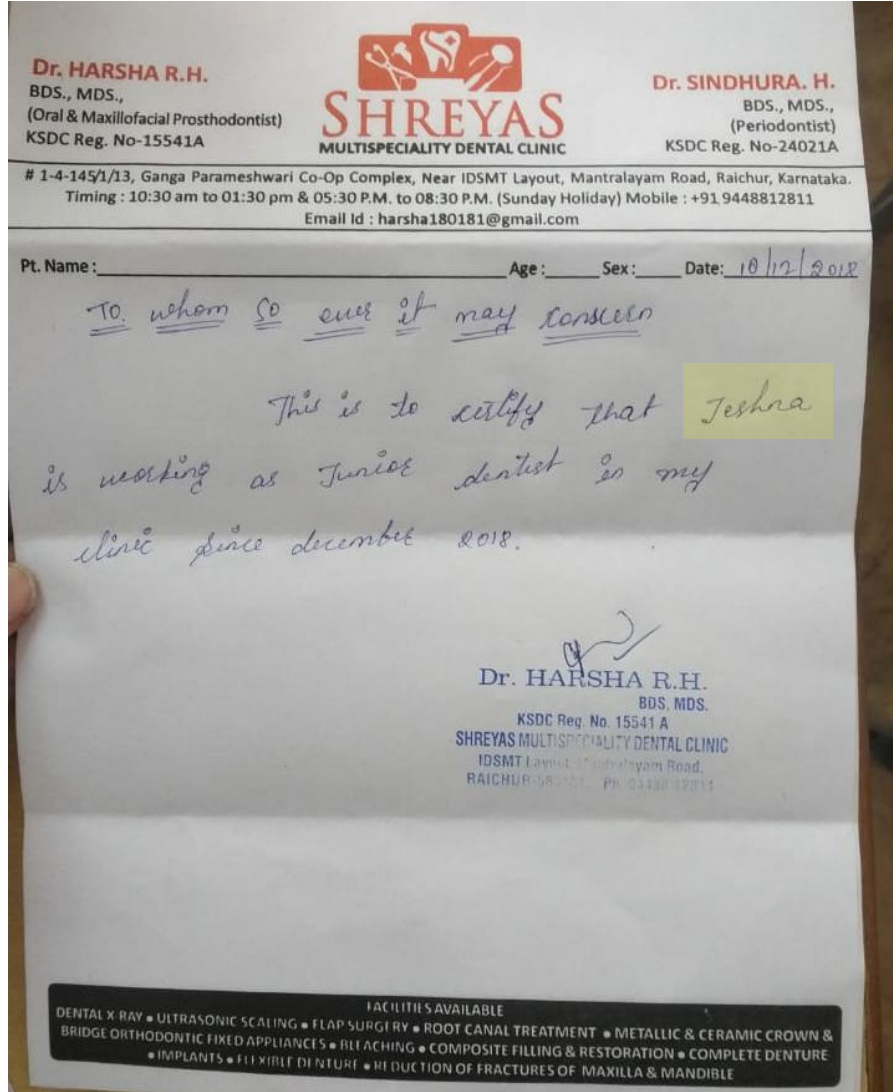 Dr. HARSHA R.H.
BDS., MDS.,
(Oral & Maxillofacial Prosthodontist)
KSDC Reg. No-15541A
SHREYAS
MULTISPECIALITY DENTAL CLINIC
Dr. SINDHURA. H.
BDS., MDS.,
(Periodontist)
KSDC Reg. No-24021A
# 1-4-145/1/13, Ganga Parameshwari Co-Op Complex, Near IDSMT Layout, Mantralayam Road, Raichur, Karnataka.
Timing : 10:30 am to 01:30 pm & 05:30 P.M. to 08:30 P.M. (Sunday Holiday) Mobile : +91 9448812811
Email Id : harsha180181@gmail.com
Pt. Name : Age : Sex : Date: 18/12/2018
To whom so ever it may concern
This is to certify that Jeshna
is working as Junior dentist in my
clinic since december 2018.
Dr. HARSHA R.H.
BDS, MDS.
KSDC Reg. No. 15541 A
SHREYAS MULTISPECIALITY DENTAL CLINIC
IDSMT Layout, Mantralayam Road,
RAICHUR
FACILITIES AVAILABLE
DENTAL X RAY • ULTRASONIC SCALING • FLAP SURGERY • ROOT CANAL TREATMENT • METALLIC & CERAMIC CROWN &
BRIDGE ORTHODONTIC FIXED APPLIANCES • BLEACHING • COMPOSITE FILLING & RESTORATION • COMPLETE DENTURE
• IMPLANTS • FLEXIBLE DENTURE • REDUCTION OF FRACTURES OF MAXILLA & MANDIBLE